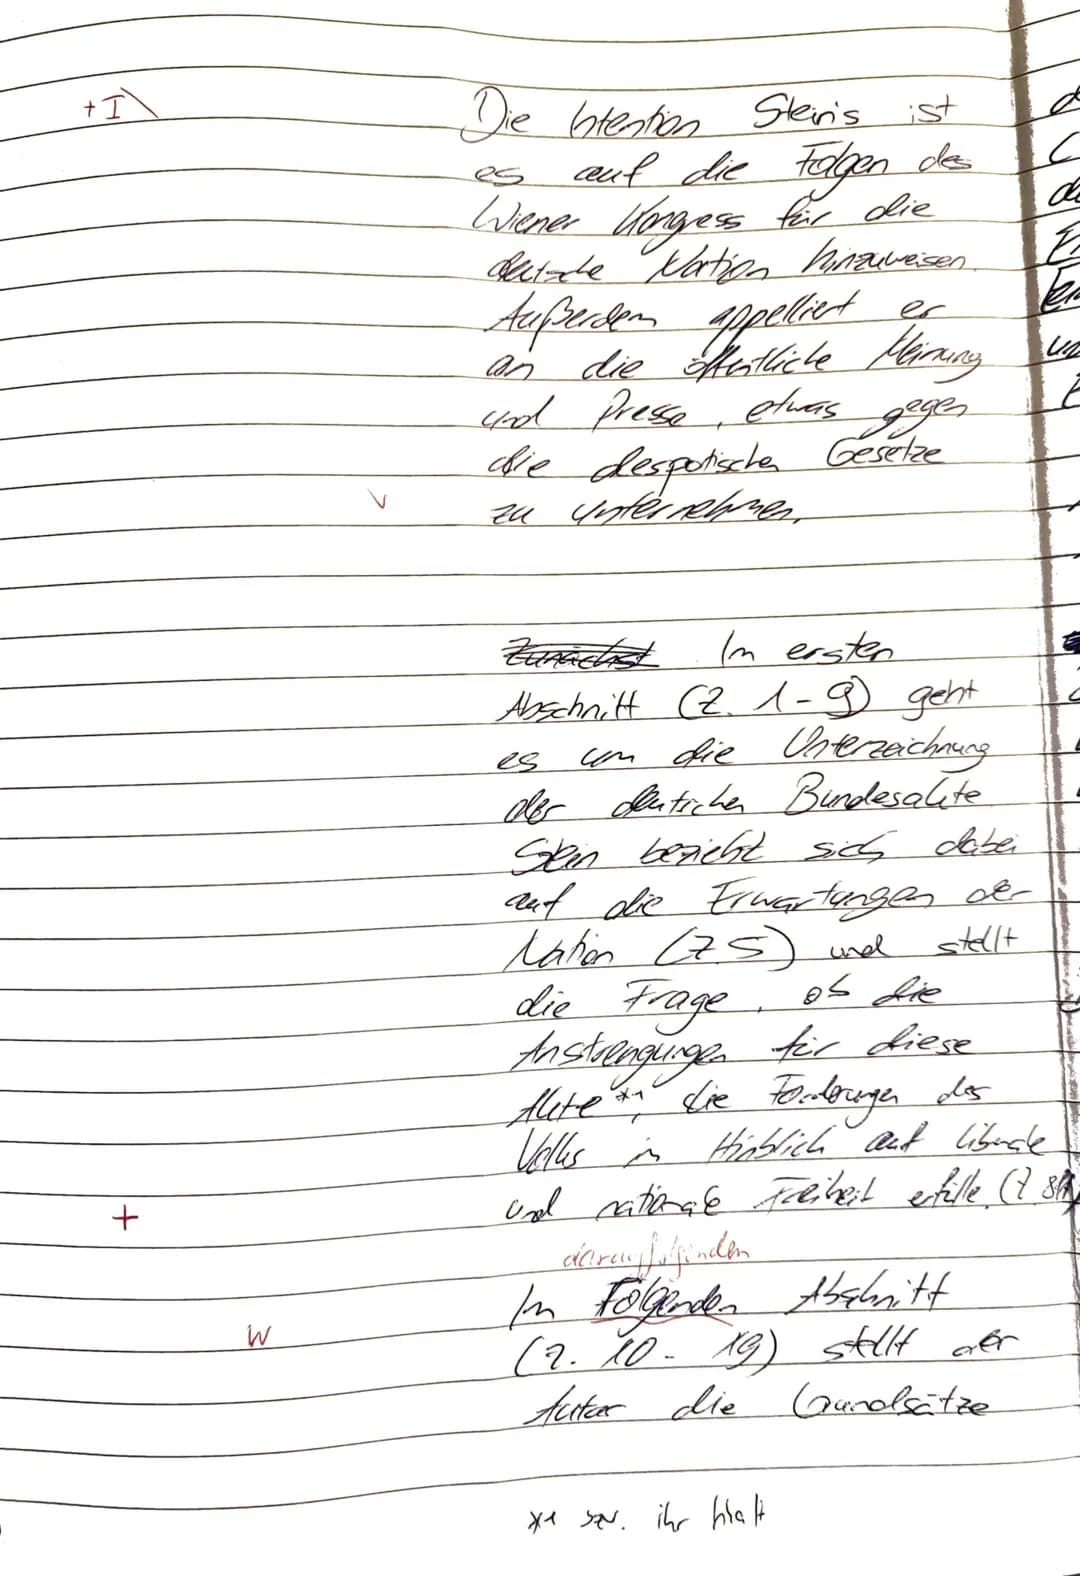 + I
Die Intention Stein's ist
es auf die Folgen des
Wiener Kongress für die
deutsche Nation hinzuweisen.
Außerdem appelliert er
an die öffentliche Meinung
und Presse, etwas gegen
die despotischen Gesetze
V
zu unternehmen.
Zunächst Im ersten
Abschnitt (Z. 1-9) geht
es um die Unterzeichnung
der deutschen Bundesakte
Stein bezieht sich dabei
auf die Erwartungen der
Nation (Z 5) und stellt
die Frage, ob die
Anstrengungen für diese
Akte *1, die Forderungen des
Volks in Hinblich auf liberale
und nationale Freiheit erfülle. (Z 8
+
darauffolgenden
Im Folgenden Abschnitt
W
(Z. 10 - 19) stellt der
Autor die Grundsätze
*1 bzw. ihr Inhalt